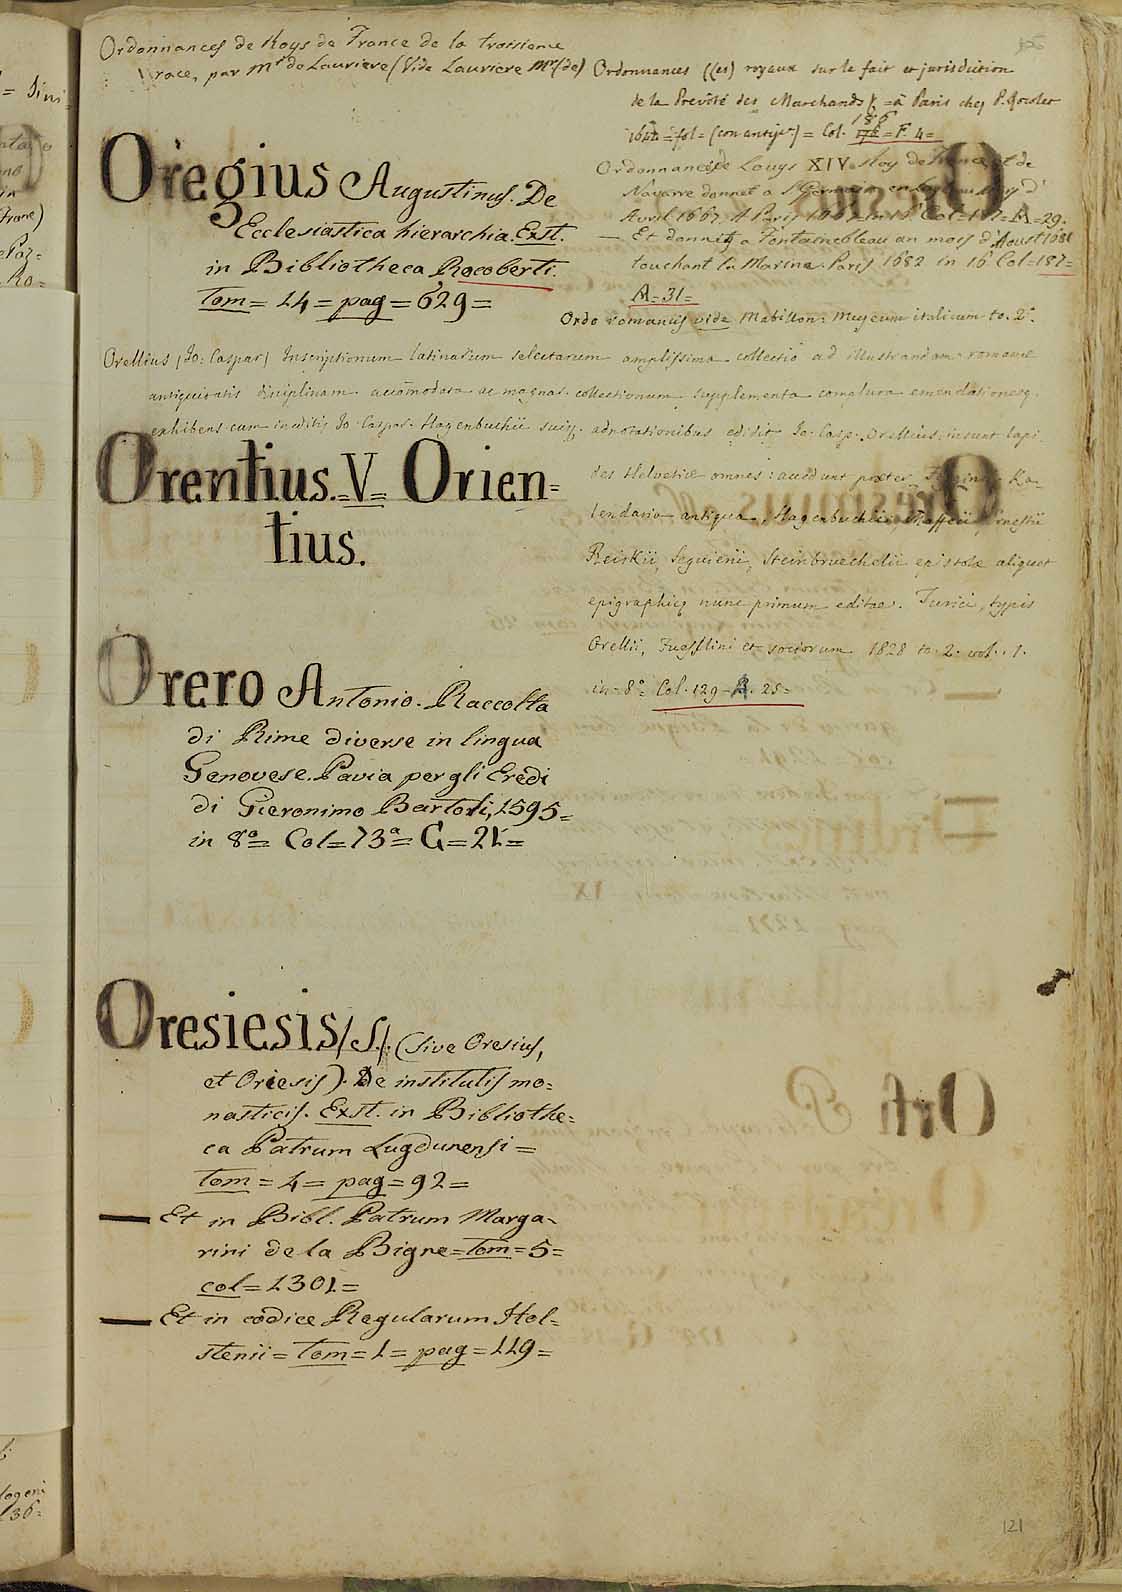 Ordonnances de Roys de France de la troisieme
race, par Mr. de Lauriere (Vide Lauriere Mr. (de)
Oregius Augustinus. De
Ecclesiastica hierarchia. Exst.
in Bibliotheca Rocoberti.
Tom = 14 = pag = 629 =
Ordonnances ((es) royaux sur le fait et jurisdiction
de la Prevôté des Marchands = à Paris chez P. Rocolet
1644 = fol = = Col. 186 = F. 4 =
Ordonnances de Louys XIV Roy de France et de
Navarre donnet a St Germain en
Avril 1667. A Paris 1667 in 16 Col = = 29.
— Et donnés a Fontainebleau au mois d'Aoust 1681
touchant la Marine. Paris 1682 in 16 Col = 187 =
A = 31 =
Ordo romanus vide Mabillon: Museum italicum to. 2°.
Orellius (Jo: Caspar) Inscriptionum latinarum selectarum amplissima collectio ad illustrandam romanae
antiquitatis disciplinam accomodata ac magnar. collectionum supplementa complura emendationesq.
exhibens cum ineditis Jo. Caspar. Hagenbuchii suisq. adnotationibus edidit Jo. Casp. Orellius: insunt lapi
des Helvetiae omnes: accedunt praeter Ka-
lendaria antiqua, Hagenbuchii, Maffeii, Ernestii
Reiskii, Seguierii, Steinbruechelii epistolae aliquot
epigraphicae nunc primum editae. Turici, typis
Orellii, Fuesslini et sociorum 1828 to. 2. vol. 1.
in = 8° = Col. 129 - B. 25 =
Orentius. = V = Orien=
tius.
Orero Antonio. Raccolta
di Rime diverse in lingua
Genovese. Pavia per gli Eredi
di Gieronimo Bartoli, 1595 =
in 8° = Col = 73ª = G = 21 =
Oresiesis (S.). (sive Oresius,
et Oriesis). De institutis mo=
nasticis. Exst. in Bibliothe=
ca Patrum Lugdunensi =
Tom = 4 = pag = 92 =
— Et in Bibl. Patrum Marga=
rini de la Bigne = Tom = 5 =
col = 1301 =
— Et in codice Regularum Hol=
stenii = Tom = 1 = pag = 119 =
121